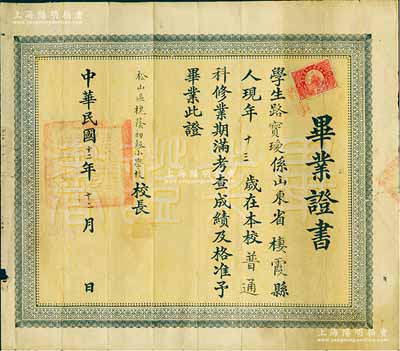 上海陽明拍賣
畢業證書
學生路寶瑗係山東省棲霞縣
人現年十三歲在本校普通
科修業期滿考查成績及格准予
畢業此證
松山區槐蔭初級小學校校長
中華民國十二年十二月 日
上海陽明拍賣